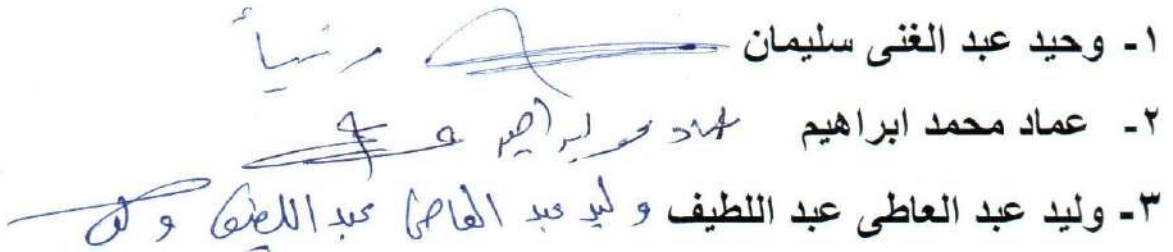 ١- وحيد عبد الغنى سليمان رئيساً
٢- عماد محمد ابراهيم عماد محمد ابراهيم
٣- وليد عبد العاطى عبد اللطيف وليد عبد العاطى عبد اللطيف